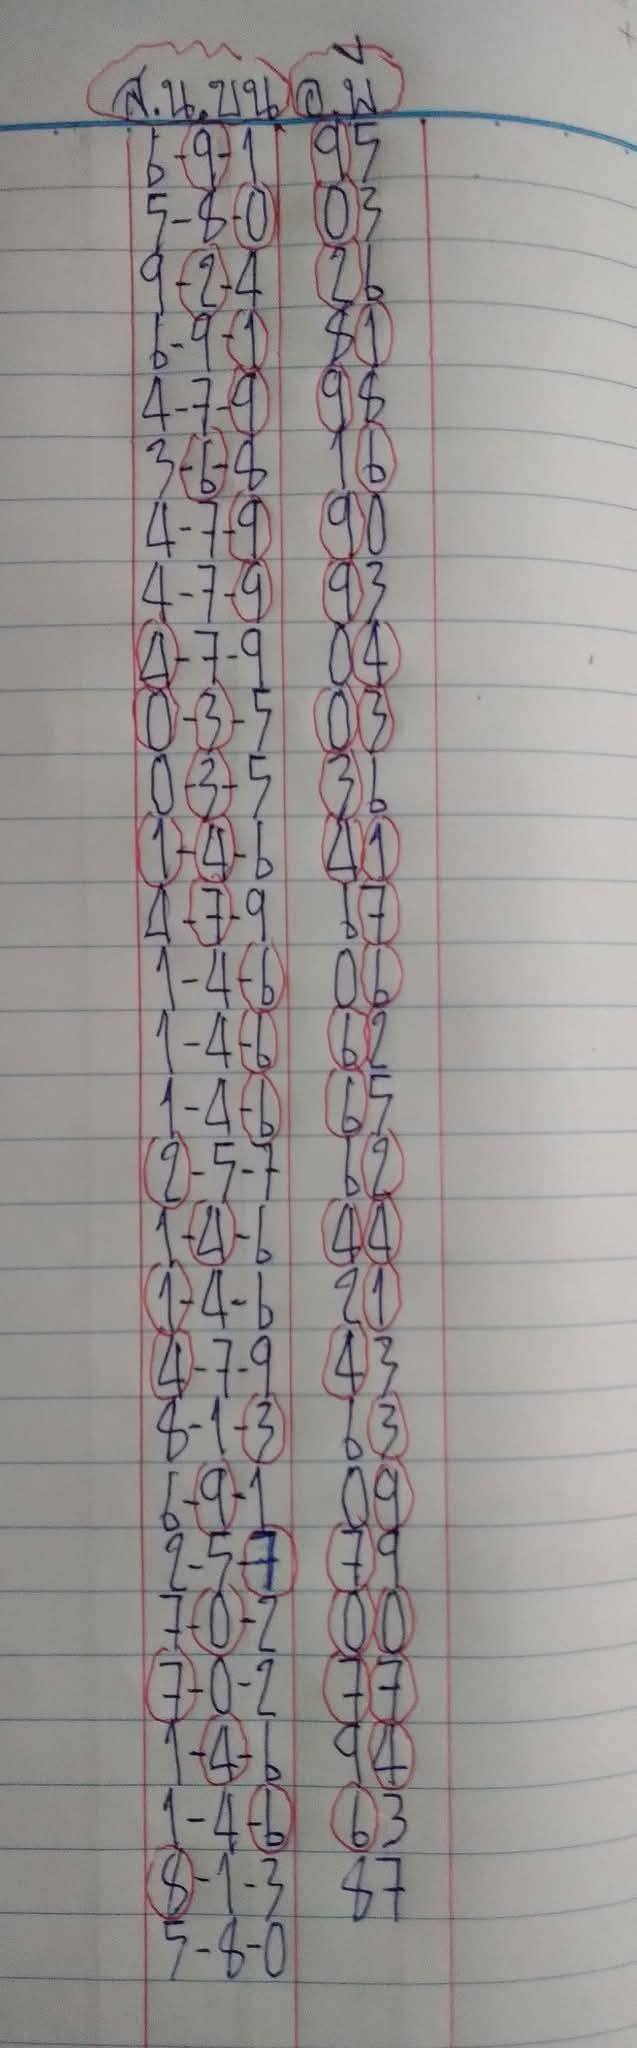 ส.น.บน อ.พี
6-9-1 95
5-8-0 03
9-2-4 26
6-9-1 81
4-7-9 98
3-6-8 16
4-7-9 90
4-7-9 93
4-7-9 04
0-3-5 03
0-3-5 36
1-4-6 41
4-7-9 67
1-4-6 06
1-4-6 62
1-4-6 65
2-5-7 62
1-4-6 44
1-4-6 21
4-7-9 43
8-1-3 63
6-9-1 09
2-5-7 79
7-0-2 00
7-0-2 77
1-4-6 94
1-4-6 63
8-1-3 87
5-8-0